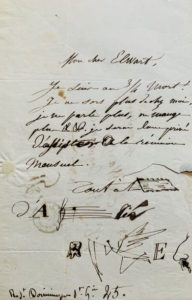 Mon cher Elwart.
Je suis au 3/4 mort!
Je ne sors plus de chez moi
je ne parle plus, ne mange
plus & je serai bien privé
d'assister à la réunion
mensuel.
Tout à
d'A
R E
R. St. Dominique